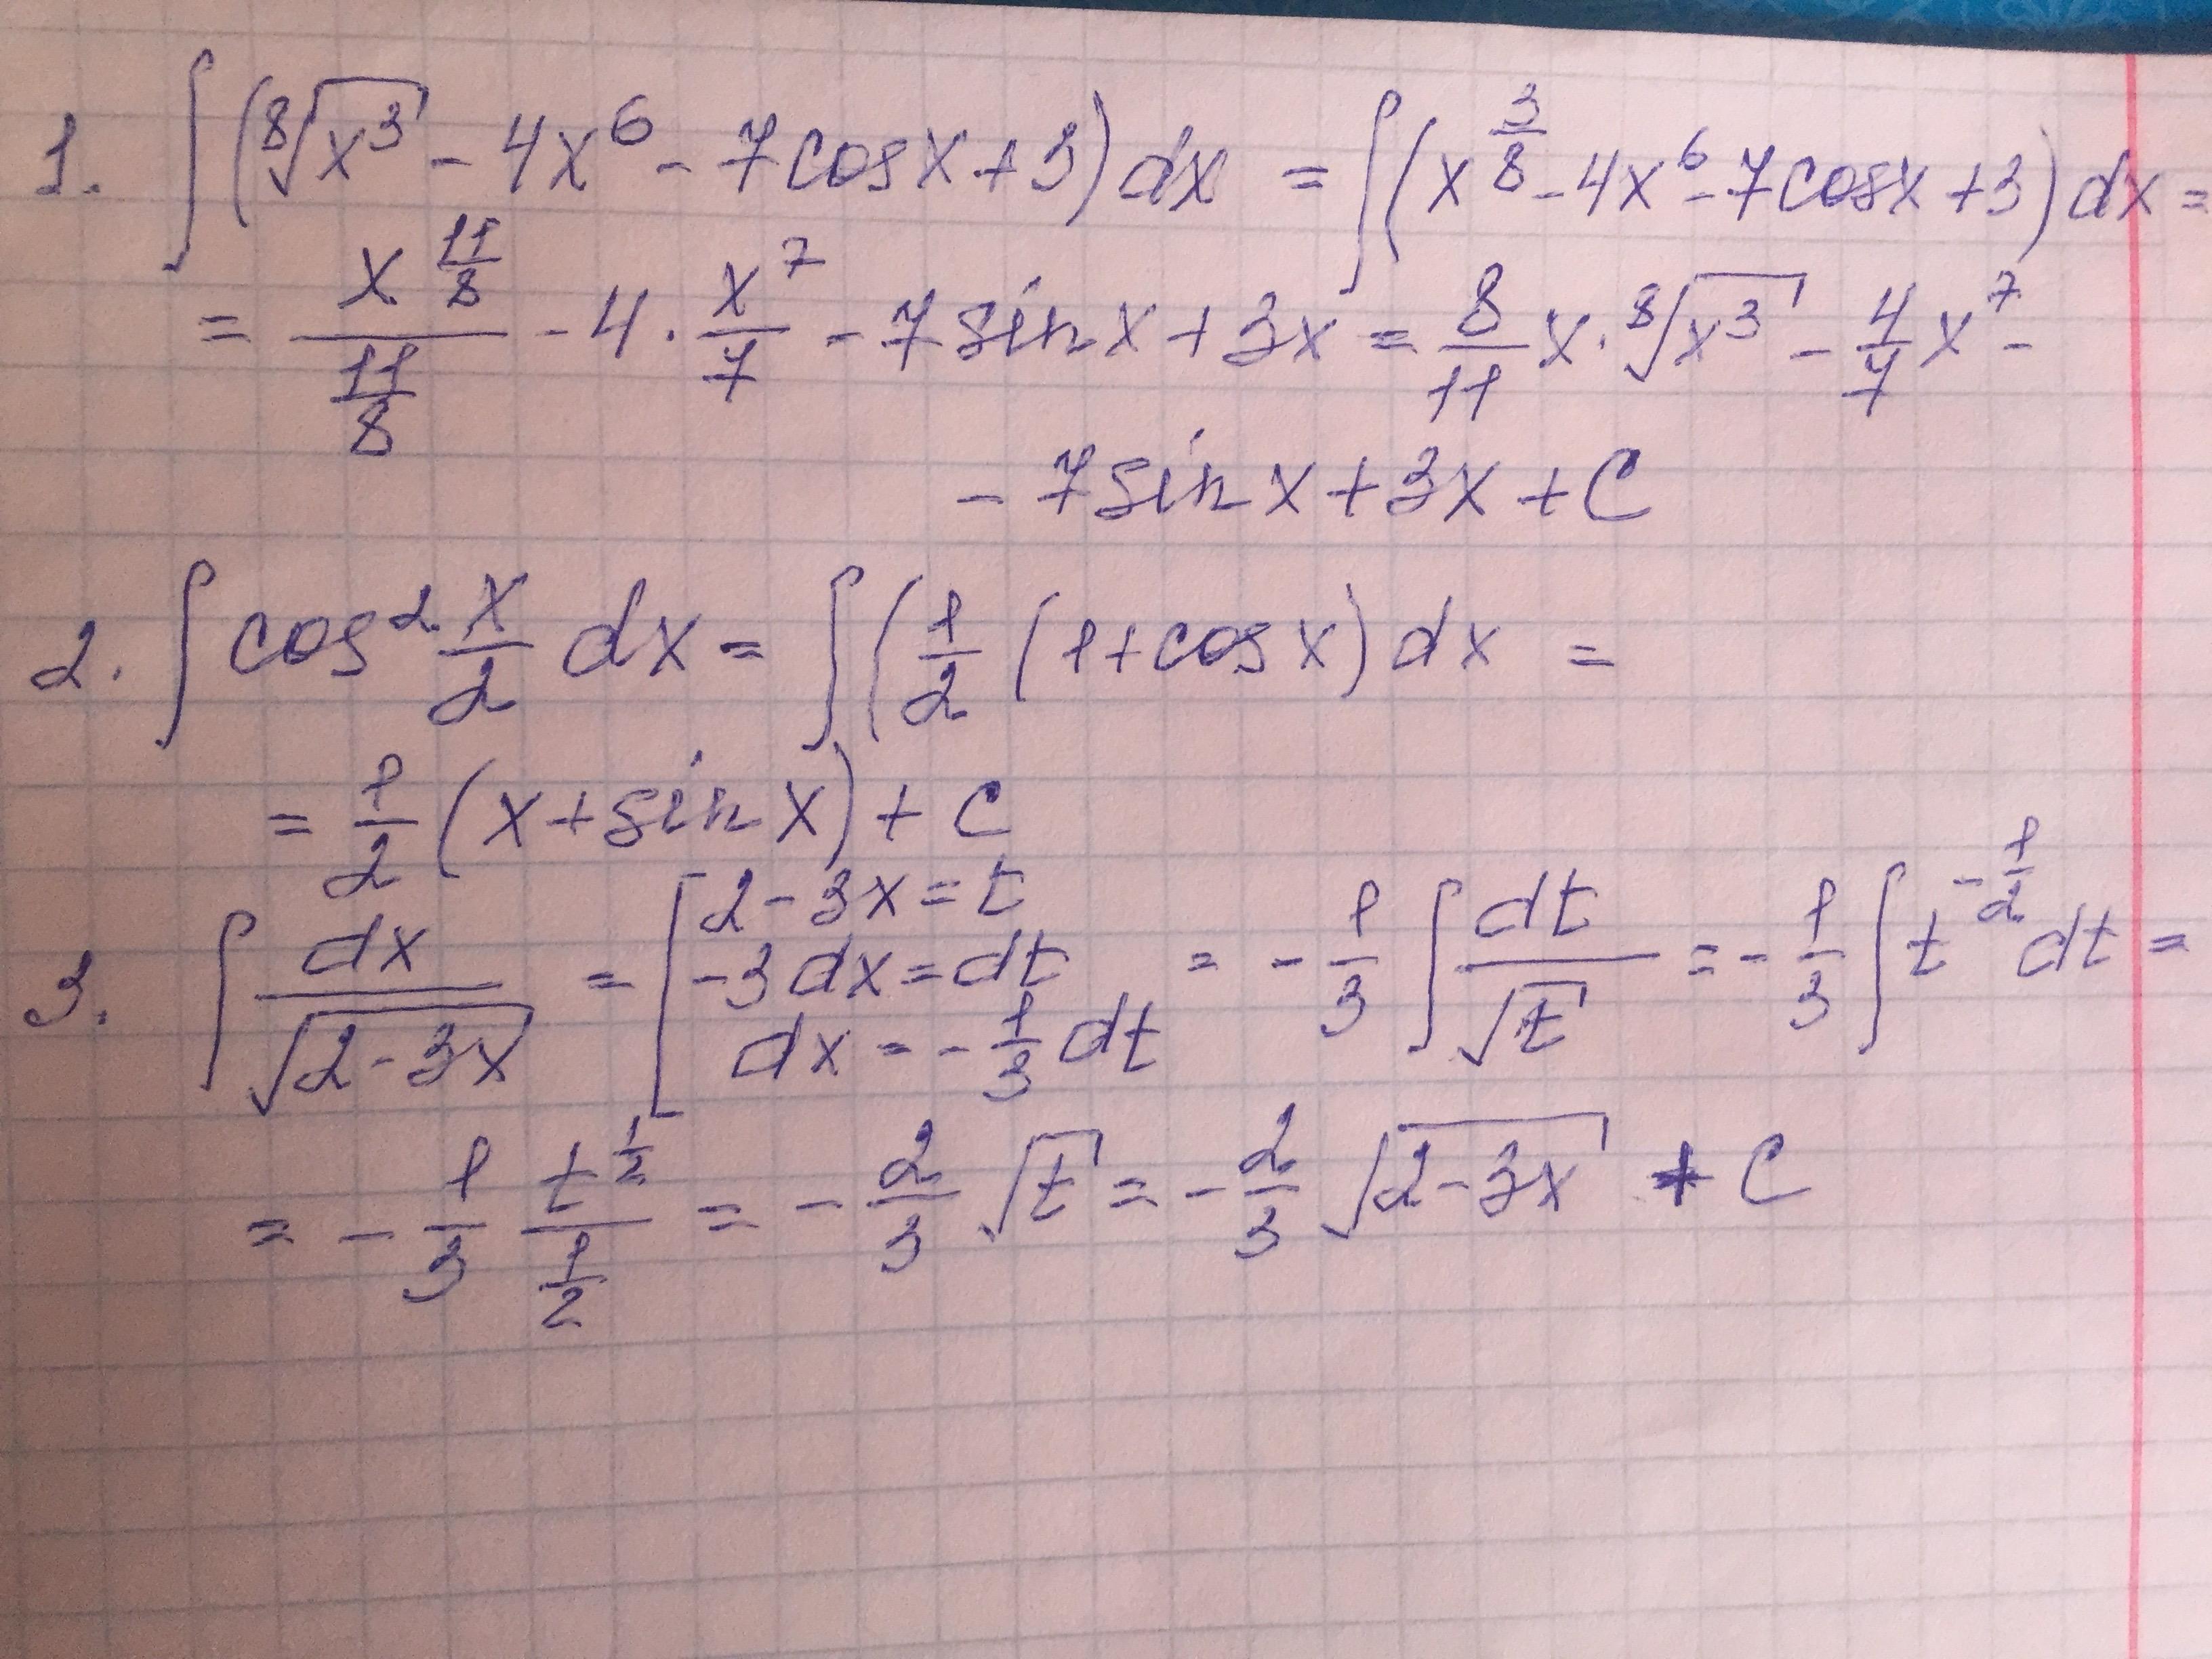 1. ∫(⁸√x³ - 4x⁶ - 7cosx + 3)dx = ∫(x^(3/8) - 4x⁶ - 7cosx + 3)dx =
= x^(11/8)/(11/8) - 4 · x⁷/7 - 7sinx + 3x = 8/11 x · ⁸√x³ - 4/7 x⁷ -
- 7sinx + 3x + C
2. ∫cos² x/2 dx = ∫(1/2 (1 + cosx)dx =
= 1/2 (x + sinx) + C
3. ∫ dx/√(2-3x) = [2-3x = t
-3dx = dt
dx = -1/3 dt
= -1/3 ∫ dt/√t = -1/3 ∫ t^(-1/2) dt =
= -1/3 t^(1/2)/(1/2) = -2/3 √t = -2/3 √(2-3x) + C